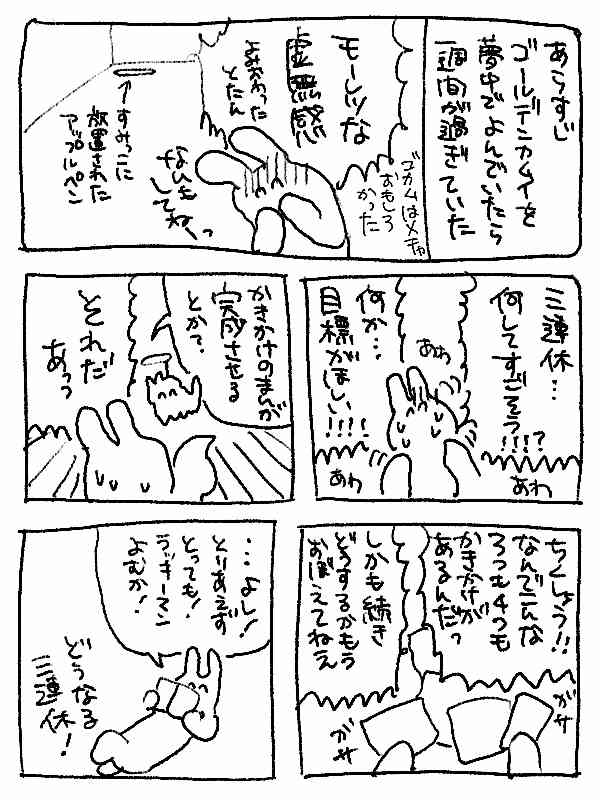 あらすじ
ゴールデンカムイを
夢中でよんでいたら
一週間が過ぎていた
ゴカムはメチャ
おもしろ
かった
モーレツな
虚無感
よみおわった
とたん
なんも
してねーっ
←すみっこに
放置された
アップルペン
三連休…
何してすごそう!!!?
何か…
目標がほしい!!!!
あわ
あわ
あわ
かきかけのまんが
完成させる
とか?
それだ
あっっ
ちくしょう!!
なんでこんな
3つも4つも
かきかけが
あるんだっ
しかも続き
どうするかもう
おぼえてねえ
ガサ
ガサ
…よし!
とりあえず
とっても!
ラッキーマン
よむか!
どうなる
三連休!